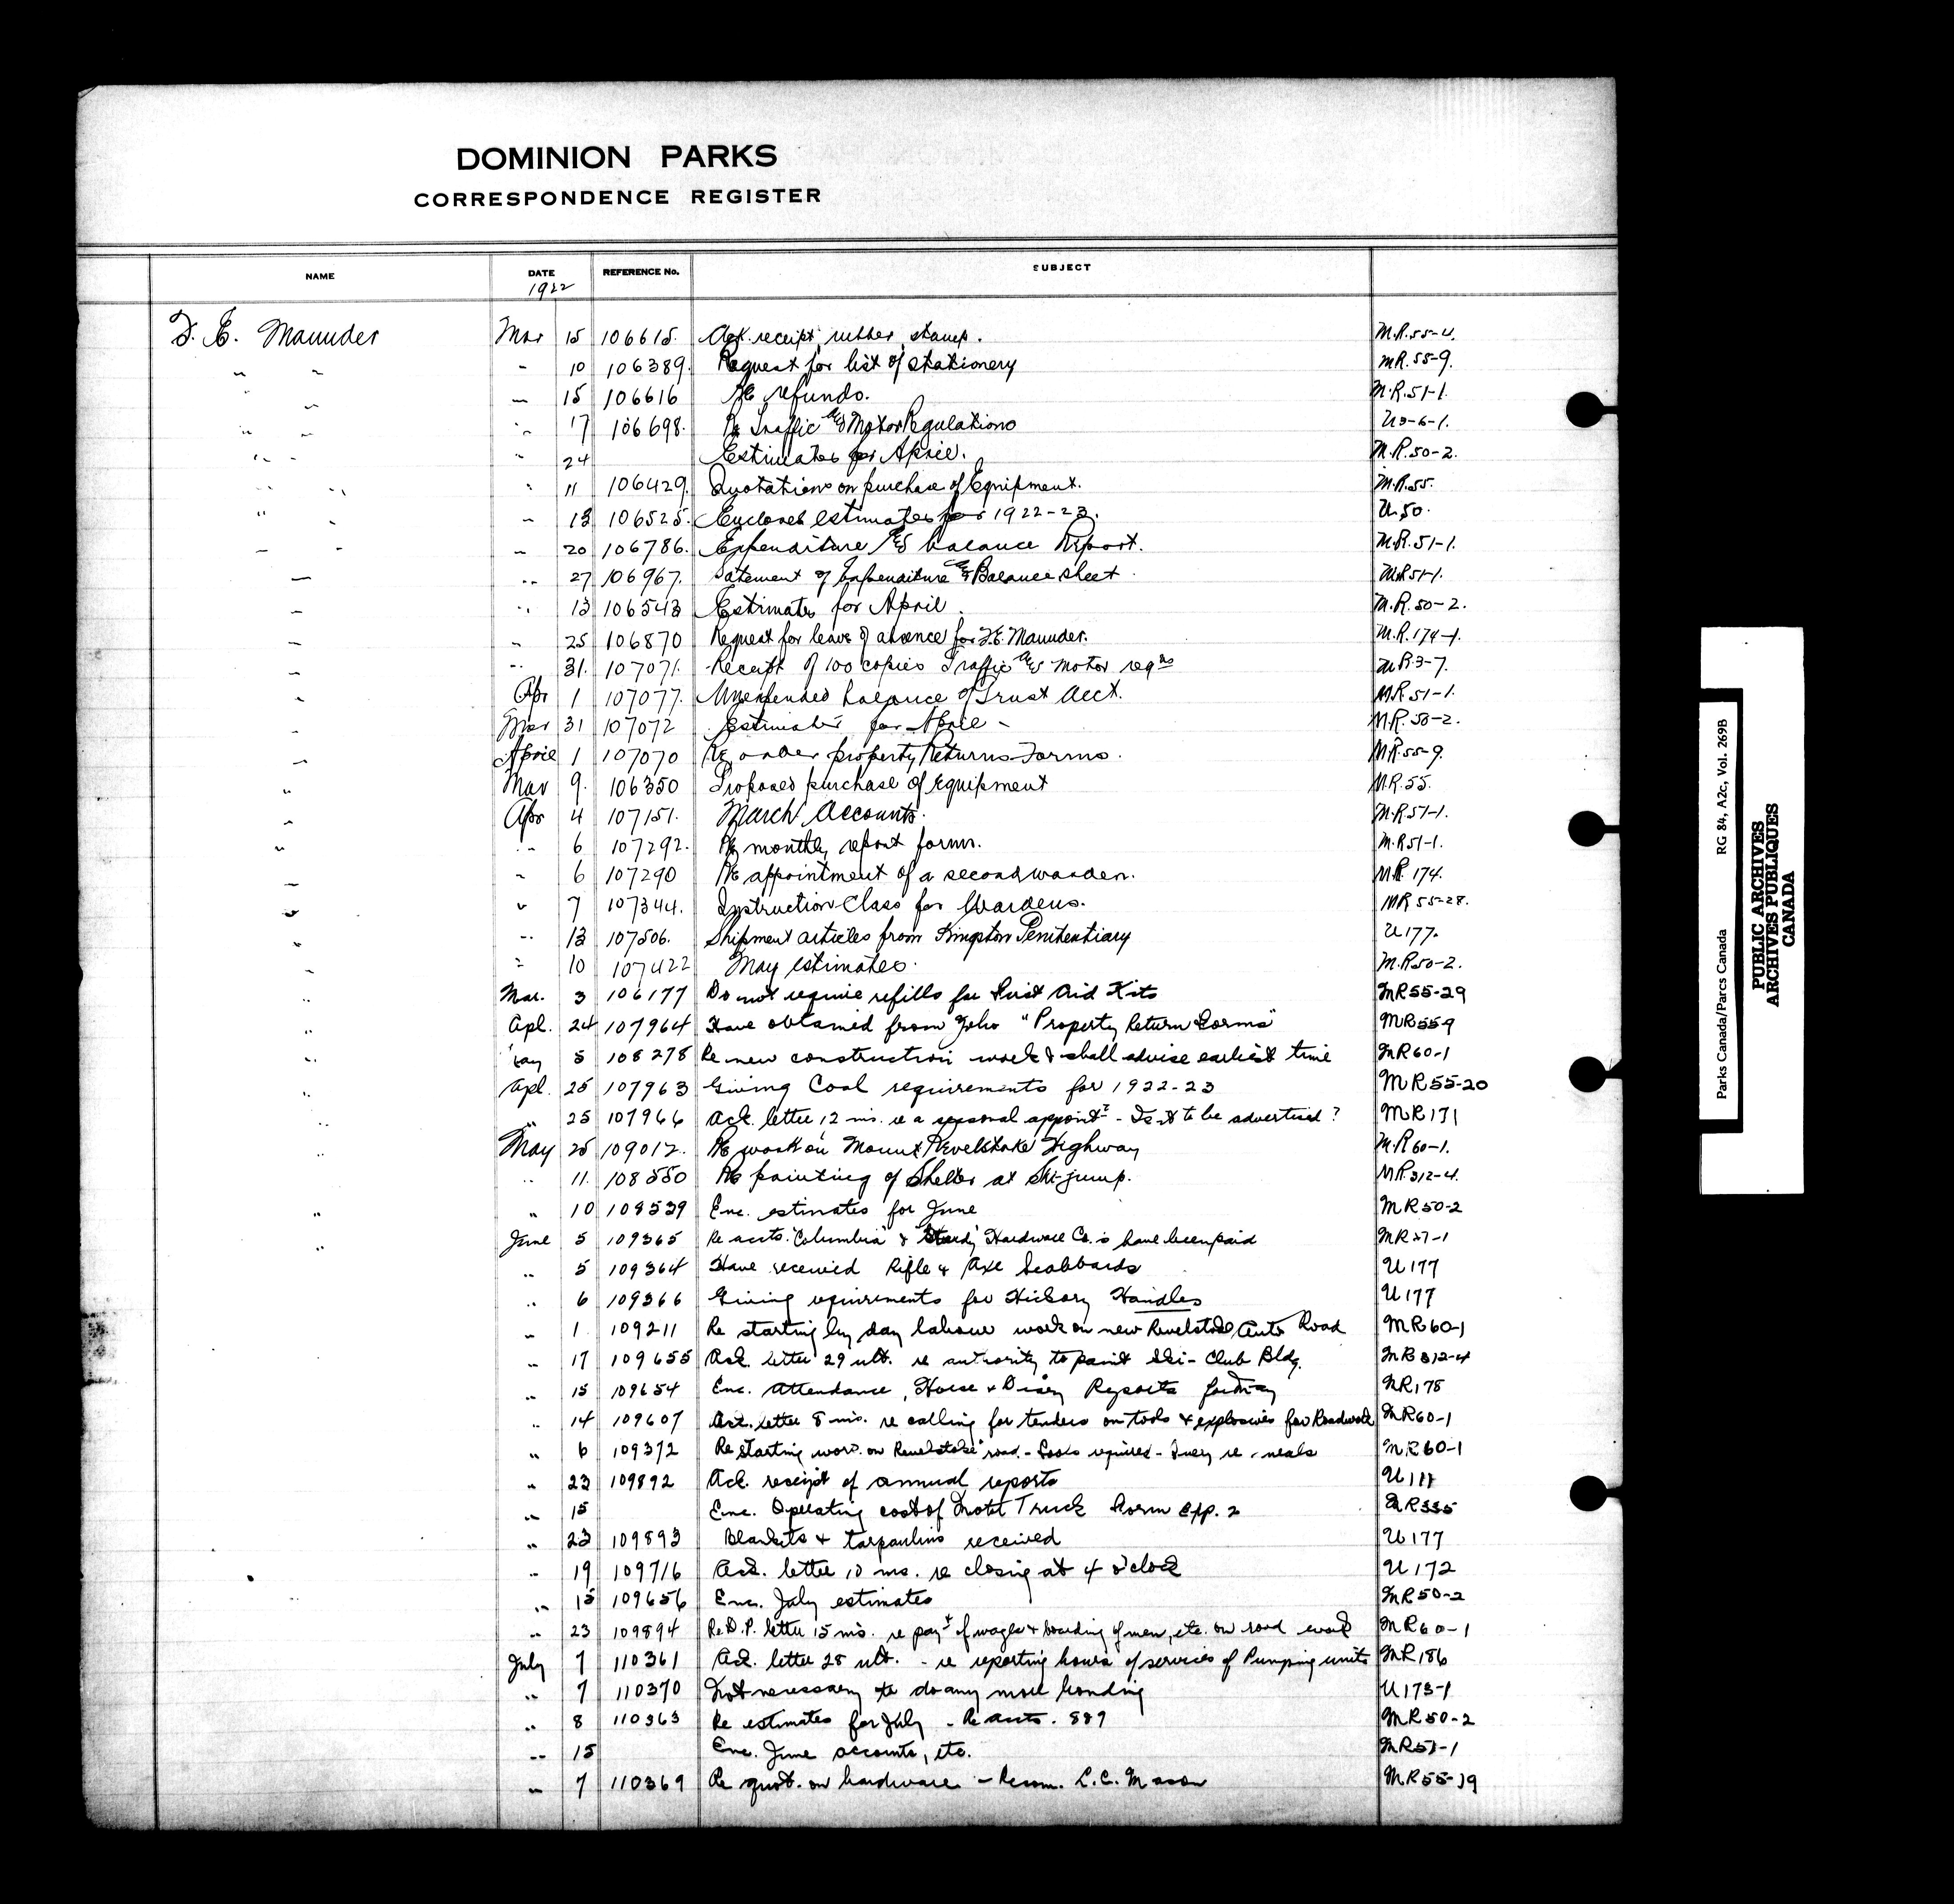 DOMINION PARKS
CORRESPONDENCE REGISTER
NAME DATE REFERENCE No. SUBJECT
1922
F. E. Maunder Mar 15 106615. Ack. receipt rubber stamp. M.R.55-4.
" " " 10 106389. Request for list of stationery MR.55-9.
" " " 15 106616 Re refunds. M.R.51-1.
" " " 17 106698. Re Traffic and Motor Regulations U3-6-1.
" " " 24 Estimates for April. M.R.50-2.
" " " 11 106429. Quotations on purchase of Equipment. M.R.55.
" " 13 106525. Encloses estimates for 1922-23. U.50.
" " " 20 106786. Expenditure & balance Report. M.R.51-1.
" " 27 106967. Satement of Expenditure & Balance sheet. M.R51-1.
" " 13 106543 Estimates for April. M.R.50-2.
" " 25 106870 Request for leave of absence for F.E. Maunder. M.R.174-1.
" " 31. 107071. Receipt of 100 copies Traffic & Motor regns M.R.3-7.
" Apr 1 107077. Unexpended balance of Trust Acct. M.R.51-1.
Mar 31 107072 Estimates for April - M.R.50-2.
" April 1 107070 Re order property Returns Forms. M.R.55-9.
" Mar 9. 106350 Proposed purchase of Equipment M.R.55.
" Apr 4 107151. March Accounts. M.R.51-1.
" " 6 107292. Re monthly report forms. M.R51-1.
" " 6 107290 Re appointment of a second warden. M.R. 174.
" " 7 107344. Instruction Class for Wardens. MR 55-28.
" " 13 107506. Shipment articles from Kingston Penitentiary U 177.
" " 10 107422 May estimates. M.R.50-2.
" Mar. 3 106177 Do not require refills for First Aid Kits MR55-29
" Apl. 24 107964 Have obtained from Yoho "Property Return Forms" MR559
" May 5 108278 Re new construction work & shall advise earliest time MR60-1
" Apl. 25 107963 Giving Coal requirements for 1922-23 MR55-20
" " 25 107966 Ack. letter 12 ins. re a seasonal appointt - Is it to be advertised? MR171
" May 25 109012. Re work on Mount Revelstoke Highway M.R60-1.
" " 11. 108550 Re painting of Shelter at Ski-jump. M.R.312-4.
" " 10 108539 Enc. estimates for June MR50-2
" June 5 109365 Re accts. "Columbia" & Hardware Co.'s have been paid MR27-1
" 5 109364 Have received Rifle & Axe Scabbards U177
" 6 109366 Giving requirements for Hickory Handles U177
" 1 109211 Re starting by day labour work on new Revelstoke Auto Road MR60-1
" 17 109655 Ack. letter 29 ult. re authority to paint Ski-Club Bldg. MR312-4
" 15 109654 Enc. Attendance, Horse & Diary Reports for May MR178
" 14 109607 Ack. letter 8 ins. re calling for tenders on tools & explosives for Roadwork MR60-1
" 6 109372 Re starting work on Revelstoke road - Tools required - Query re meals MR60-1
" 23 109892 Ack. receipt of annual reports U 111
" 15 Enc. Operating cost of Motor Truck Form Exp. 2 MR335
" 23 109893 Blankets & tarpaulins received U177
" 19 109716 Ack. letter 10 ins. re closing at 4 o'clock U172
" 15 109656 Enc. July estimates MR50-2
" 23 109894 Re D.P. letter 15 ins. re payt of wages & boarding of men, etc. on road work MR60-1
July 7 110361 Ack. letter 28 ult. - re reporting hours of services of Pumping units MR186
" 7 110370 Not necessary to do any more bonding U173-1
" 8 110363 Re estimates for July - Re accts. 889 MR50-2
" 15 Enc. June accounts, etc. MR51-1
" 7 110369 Re quot. on hardware - Recom. L.C. Mason MR55-19
Parks Canada/Parcs Canada RG 84, A2c, Vol. 269B
PUBLIC ARCHIVES
ARCHIVES PUBLIQUES
CANADA